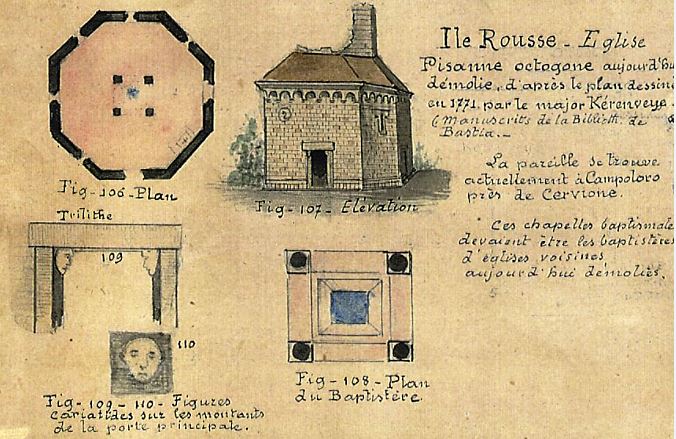 Ile Rousse - Eglise
Pisanne octogone aujourd'hui
démolie, d'après le plan dessiné
en 1771, par le major Kérenveye.
(manuscrits de la Biblioth. de
Bastia. -
La pareille se trouve
actuellement à Campoloro
près de Cervione.
Ces chapelles baptismale
devaient être les baptistères
d'églises voisines
aujourd'hui démolies.
Fig - 106 - Plan
Fig - 107 - Elévation
Trilithe
109
110
Fig - 109 - 110 - Figures
cariatides sur les montants
de la porte principale.
Fig - 108 - Plan
du Baptistère.